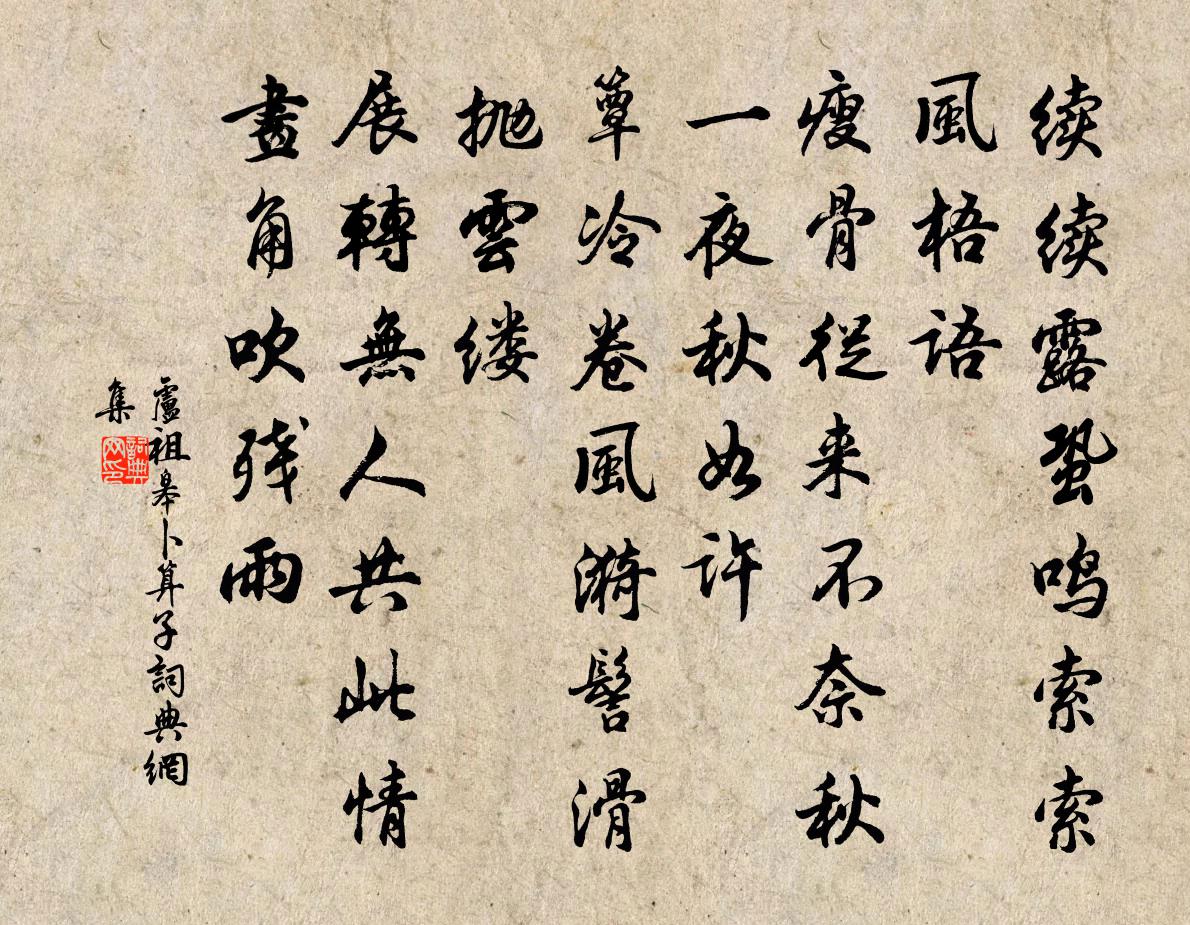 续续露蛩鸣索索
風梧语
瘦骨從来不奈秋
一夜秋如许
簟冷卷風漪髻滑
抛雲缕
展轉無人共此情
畫角吹残雨
盧祖皋卜算子詞典網
集
詞典网印